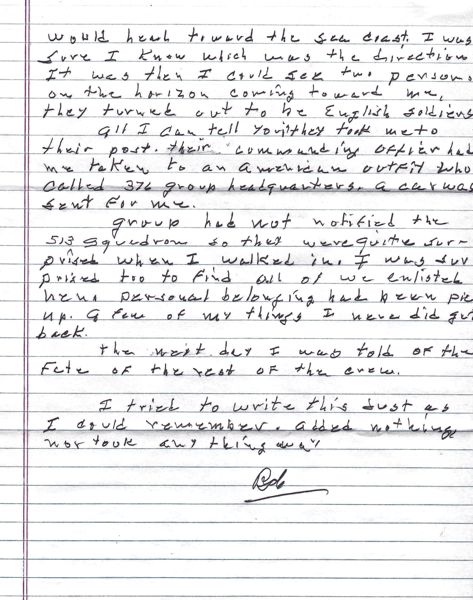 would head toward the sea coast. I was
sure I knew which was the direction
It was then I could see two persons
on the horizon coming toward me,
they turned out to be English soldiers
all I can tell you, they took me to
their post. their commanding officer had
me taken to an american outfit who
called 376 group headquarters. a car was
sent for me.
group had not notified the
513 squadron so they were quite sur-
prised when I walked in. I was sur
prised too to find all of we enlisted
mens personal belonging had been pic
up. a few of my things I never did get
back.
the next day I was told of the
Fete of the rest of the crew.
I tried to write this just as
I could remember. added nothing
nor took any thing away
Bob